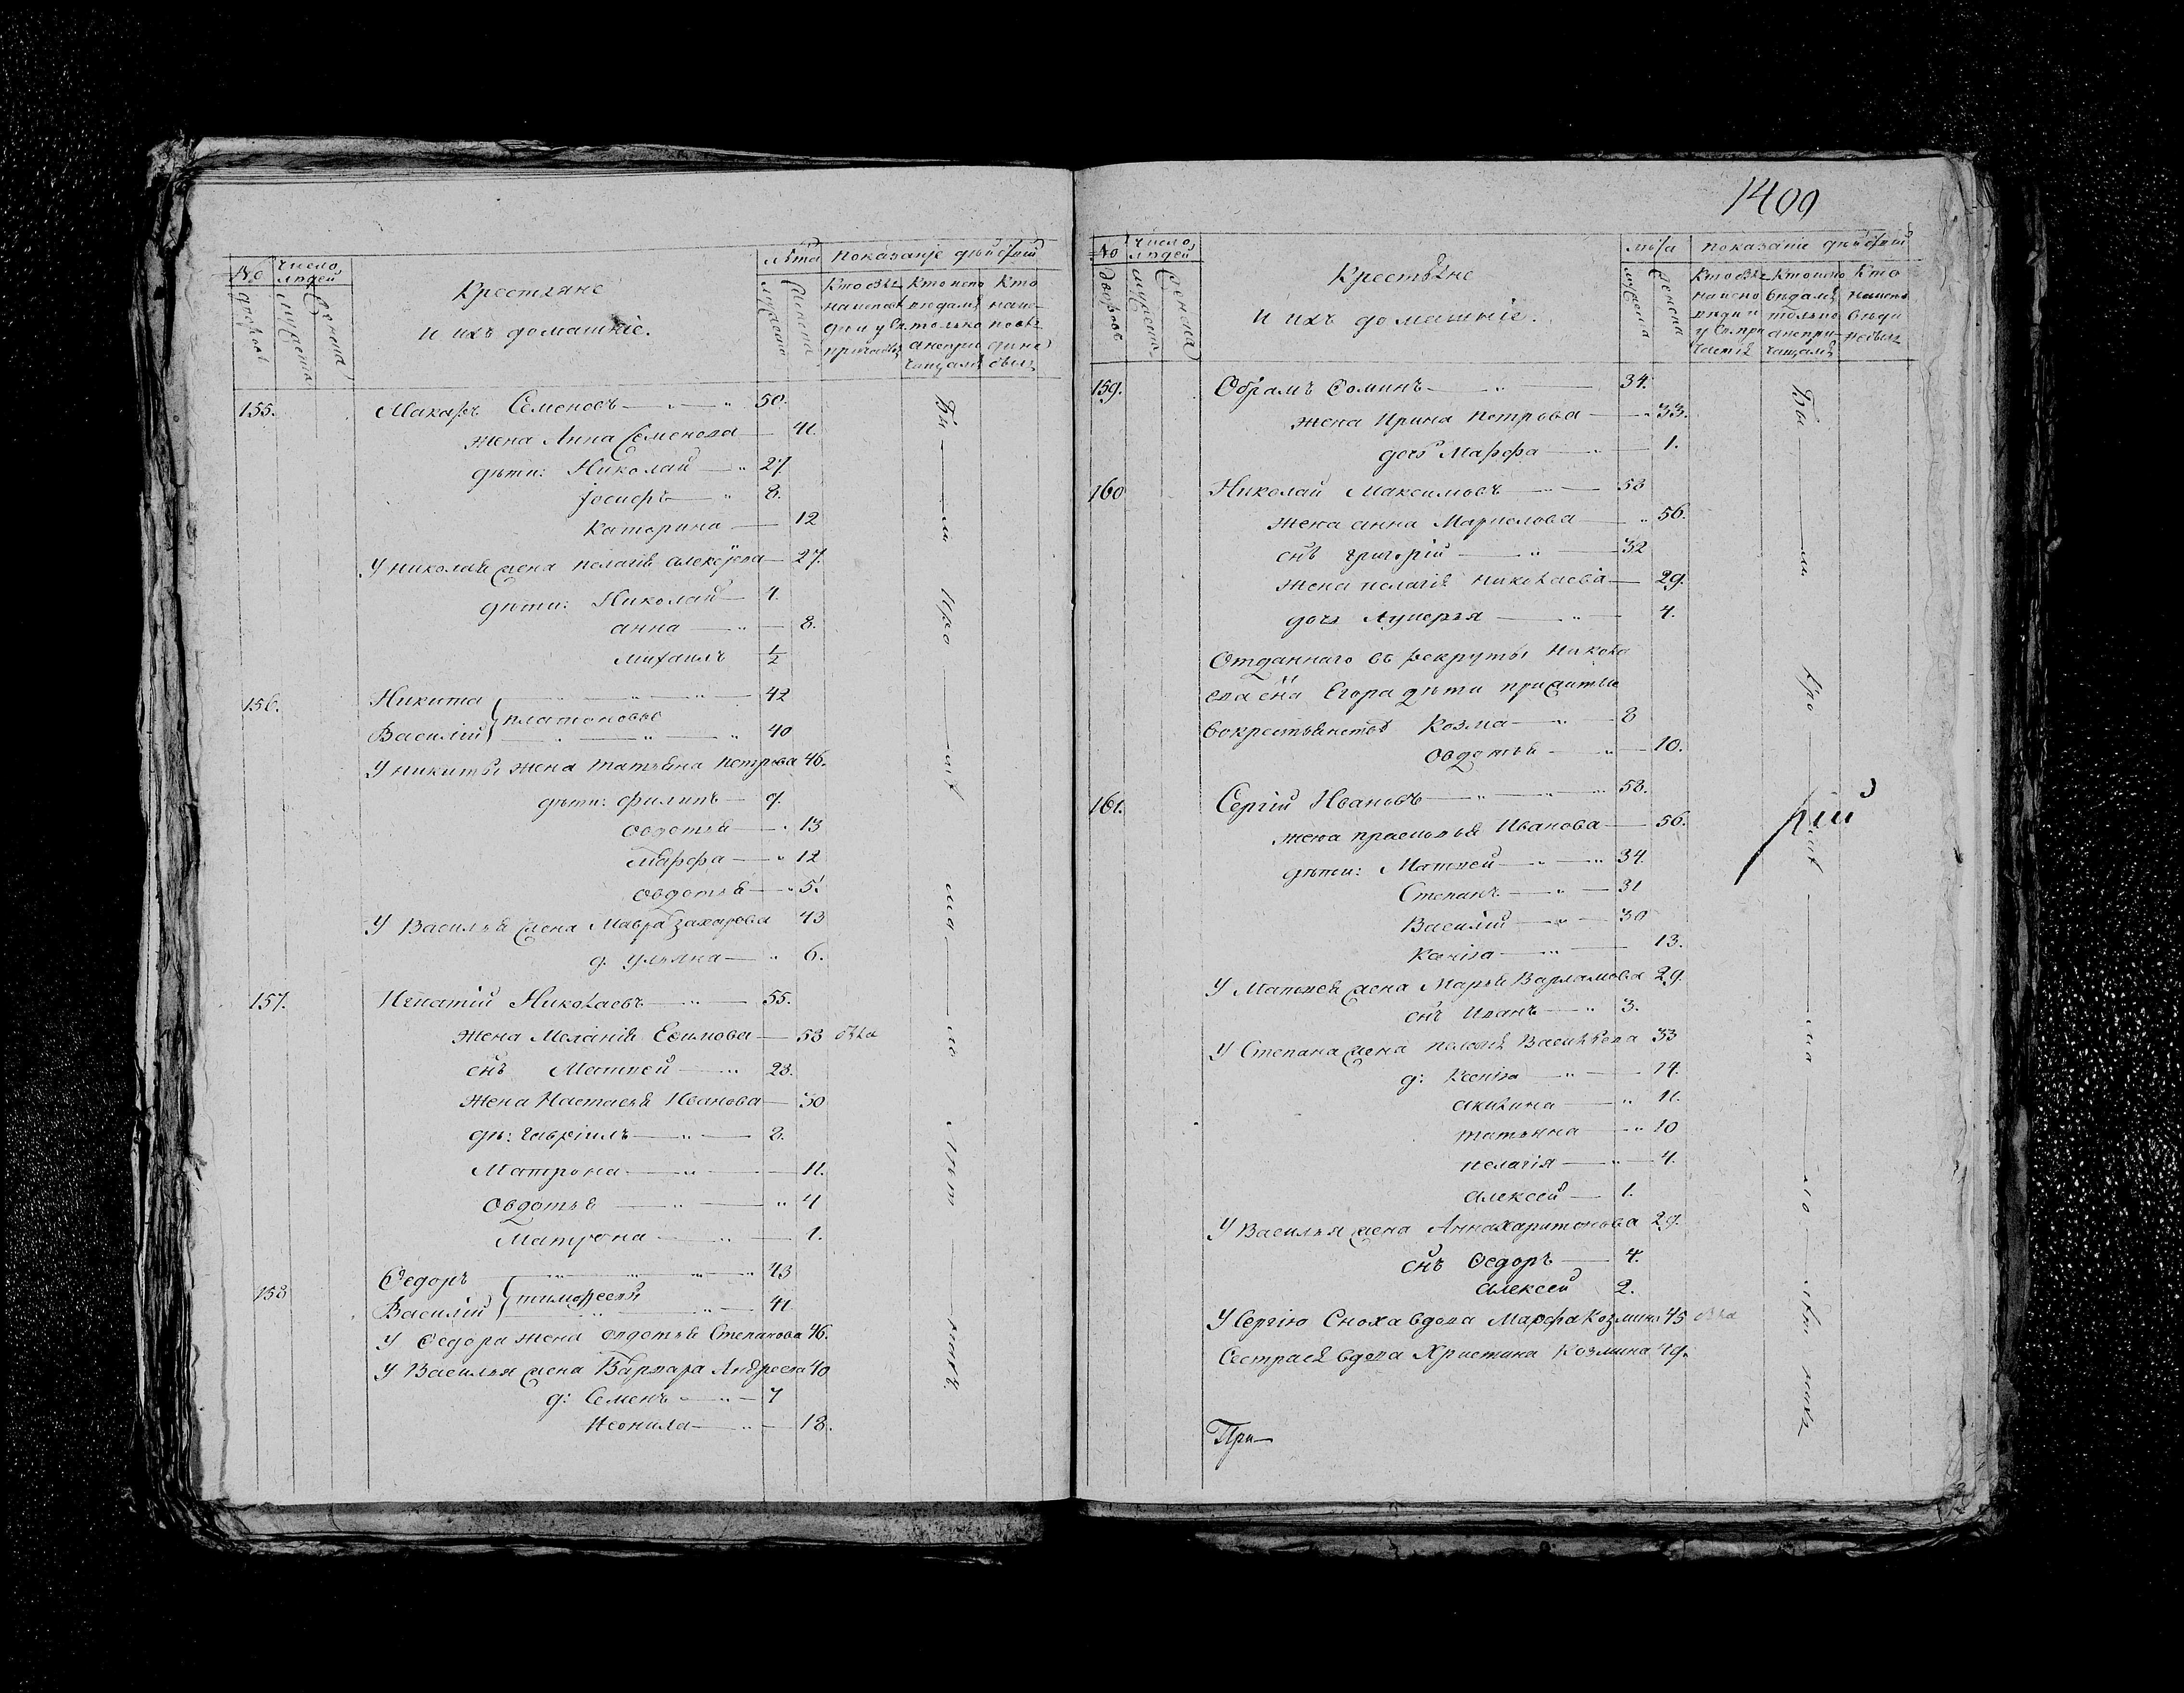 No
число людей
мужеска
женска
Крестьяне
и ихъ домашніе.
лѣта
мужеска
женска
показаніе дѣйствій
155. Макаръ Семеновъ 50.
жена Анна Семенова 41.
дѣти: Николай 27
Іосифъ 8.
Катерина 12
У Николая жена пелагія алексѣева 27.
дѣти: Николай 4.
анна 8.
михаилъ 1/2
156. Никита 42
платоновы
Василій 40
У никиты жена татьяна петрова 46.
дѣти: филипъ 9.
овдотья 13
Марфа 12
овдотья 5.
У Василья жена Мавра захарова 43
д. ульяна 6.
157. Игнатій Николаевъ 55.
жена Меланія Ефимова 53 была
снъ Матвей 28.
жена Настасья Иванова 30
дѣ: гавріилъ 8.
Матрона 11.
Овдотья 4
Матрона 1.
158 Ѳедоръ 43
тимофеевы
Василій 41
У Ѳедора жена овдотья Степанова 46.
У Василья жена Варвара Андреева 40
д: Семенъ 7
Неонила 18.
1409
No
число людей
мужеска
женска
Крестьяне
и ихъ домашніе.
лѣта
мужеска
женска
показаніе дѣйствій
159. Обрамъ Ѳоминъ 34.
жена Ирина петрова 33.
дочь Марфа 1.
160 Николай Максимовъ 58
жена анна 56.
снъ григорій 32
жена пелагія николаева 29.
дочь Лукерья 4.
Отданнаго въ рекруты Никола
ева сна Егора дѣти прижитые
вокрестьянствѣ Козма 8
Овдотья 10.
161. Сергій Ивановъ 58.
жена прасковья Иванова 56.
дѣти: Матвей 34.
Степанъ 31
Василій 30
Ксенія 13.
У Матвея жена Марья Варламова 29.
снъ Иванъ 3.
У Степана жена пелагія Василѣева 33
д: Ксенія 14.
акилина 11.
татьяна 10
пелагія 4.
алексей 1.
У Василья жена Анна харитонова 29.
снъ Ѳедоръ 4.
алексей 2.
У Сергію Сноха вдова Марфа Козмина 45 была
Сестра ея вдова Христина Козмина 49.
рій
При